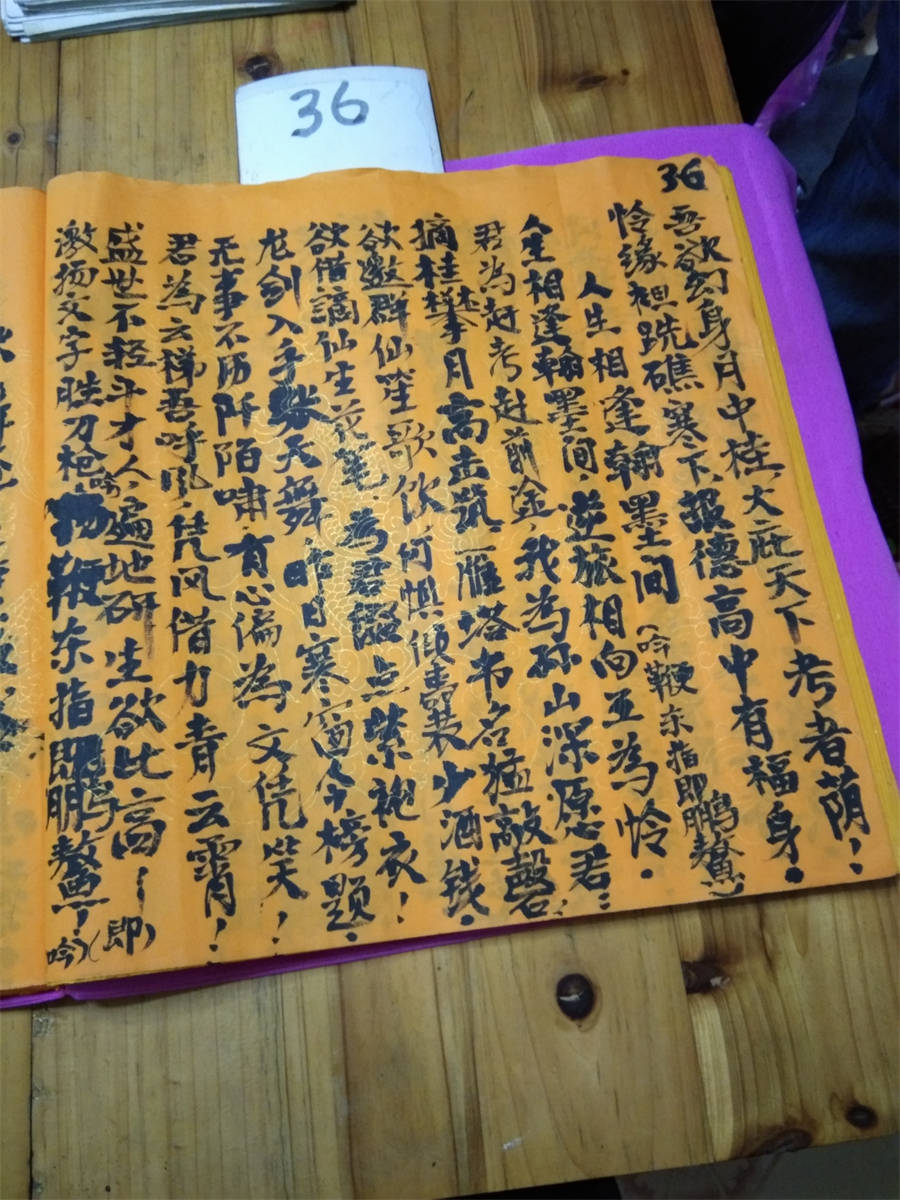 36
36
吾欲幻身月中桂,大庇天下考者荫!
怜缘相跣礁寒下,报德高中有福身.
人生相逢翰墨间(吟鞭东指即鹏鳌)
人生相逢翰墨间,逆旅相向互为怜.
君为赶考赴前金,我为孙山深愿君:
摘桂攀月高击筑,雁塔书名猛敲磬.
欲邀群仙笙歌饮,何惧倾囊装少酒钱.
欲借谪仙生花笔,考君缀点紫袍衣!
龙剑入手张天舞,昨日寒窗今榜题.
无事不历阡陌啸,有心偏为文凭笑!
君为云梯吾呼吼,凭风借力青云霄!
盛世不轻斗才人,遍地研生欲比高!(即)
激扬文字胜刀枪,吟鞭东指即鹏鳌!吟)